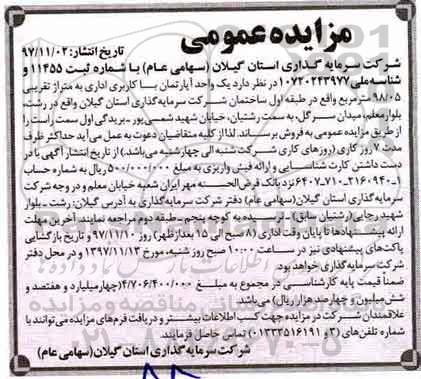 مزایده عمومی
تاریخ انتشار: ۹۷/۱۱/۰۲
شرکت سرمایه گذاری استان گیلان (سهامی عام) با شماره ثبت ۱۱۴۵۵ و
شناسه ملی ۱۰۷۲۰۲۴۳۹۷۷ در نظر دارد یک واحد آپارتمان با کاربری اداری به متراژ تقریبی
۱۸۸.۰۵ متر مربع واقع در طبقه اول ساختمان شرکت سرمایه‌گذاری استان گیلان واقع در رشت،
بلوار معلم، میدان سرگل، به سمت رشتیان، خیابان شهید شمس پور - بریدگی اول سمت راست را
از طریق مزایده عمومی به فروش برساند. لذا از کلیه متقاضیان دعوت به عمل می‌آید حداکثر ظرف
مدت ۷ روز کاری (روزهای کاری شرکت شنبه الی چهارشنبه می‌باشد.) از تاریخ انتشار آگهی با در
دست داشتن کارت شناسایی و ارائه فیش واریزی به مبلغ ۵۰۰/۰۰۰ ریال به شماره حساب
۶۴۰۷-۷۱۰-۲۱۶۰۹۴۰-۱ نزد بانک قرض‌الحسنه مهر ایران شعبه خیابان معلم و در وجه شرکت
سرمایه‌گذاری استان گیلان (سهامی عام) دفتر شرکت سرمایه‌گذاری به آدرس گیلان: رشت - بلوار
شهید رجایی (رشتیان سابق) - نرسیده به کوچه پنجم - طبقه دوم مراجعه نمایند. آخرین مهلت
ارائه پیشنهادها تا پایان وقت اداری (۸ صبح الی ۱۵ بعدازظهر) روز ۹۷/۱۱/۱۰ و تاریخ بازگشایی
پاکت‌های پیشنهادی نیز در ساعت ۱۰:۰۰ صبح روز شنبه، مورخ ۱۳۹۷/۱۱/۱۳ و در محل دفتر
شرکت سرمایه گذاری خواهد بود.
ضمناً قیمت پایه کارشناسی در مجموع به مبلغ ۴/۷۰۶/۴۰۰/۰۰۰ (چهار میلیارد و هفتصد و
شش میلیون و چهارصد هزار ریال) می‌باشد.
علاقمندان شرکت در مزایده جهت کسب اطلاعات بیشتر و دریافت فرم‌های مزایده می‌توانند با
شماره تلفن‌های (۳ و ۰۱۳۳۲۵۱۶۱۹۱) تماس حاصل فرمایند.
شرکت سرمایه گذاری استان گیلان (سهامی عام)